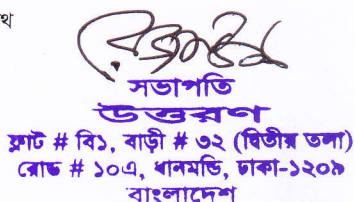 থ
সভাপতি
উত্তরণ
ফ্লাট # বি১, বাড়ী # ৩২ (দ্বিতীয় তলা)
রোড # ১০এ, ধানমন্ডি, ঢাকা-১২০৯
বাংলাদেশ